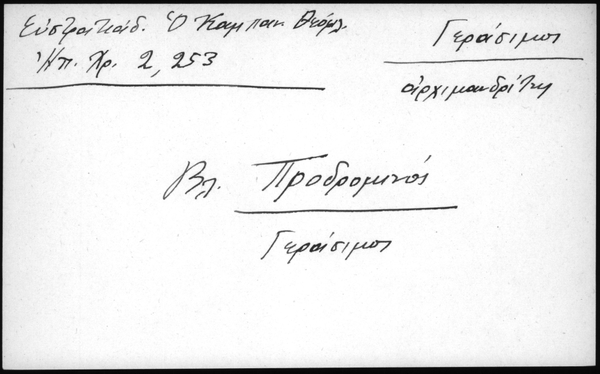 Εὐστρατιάδ. Ὁ Καμπαν. Θεόφιλ.
Ἠπ. Χρ. 2, 253
Γεράσιμος
ἀρχιμανδρίτης
Βλ. Προδρομινός
Γεράσιμος